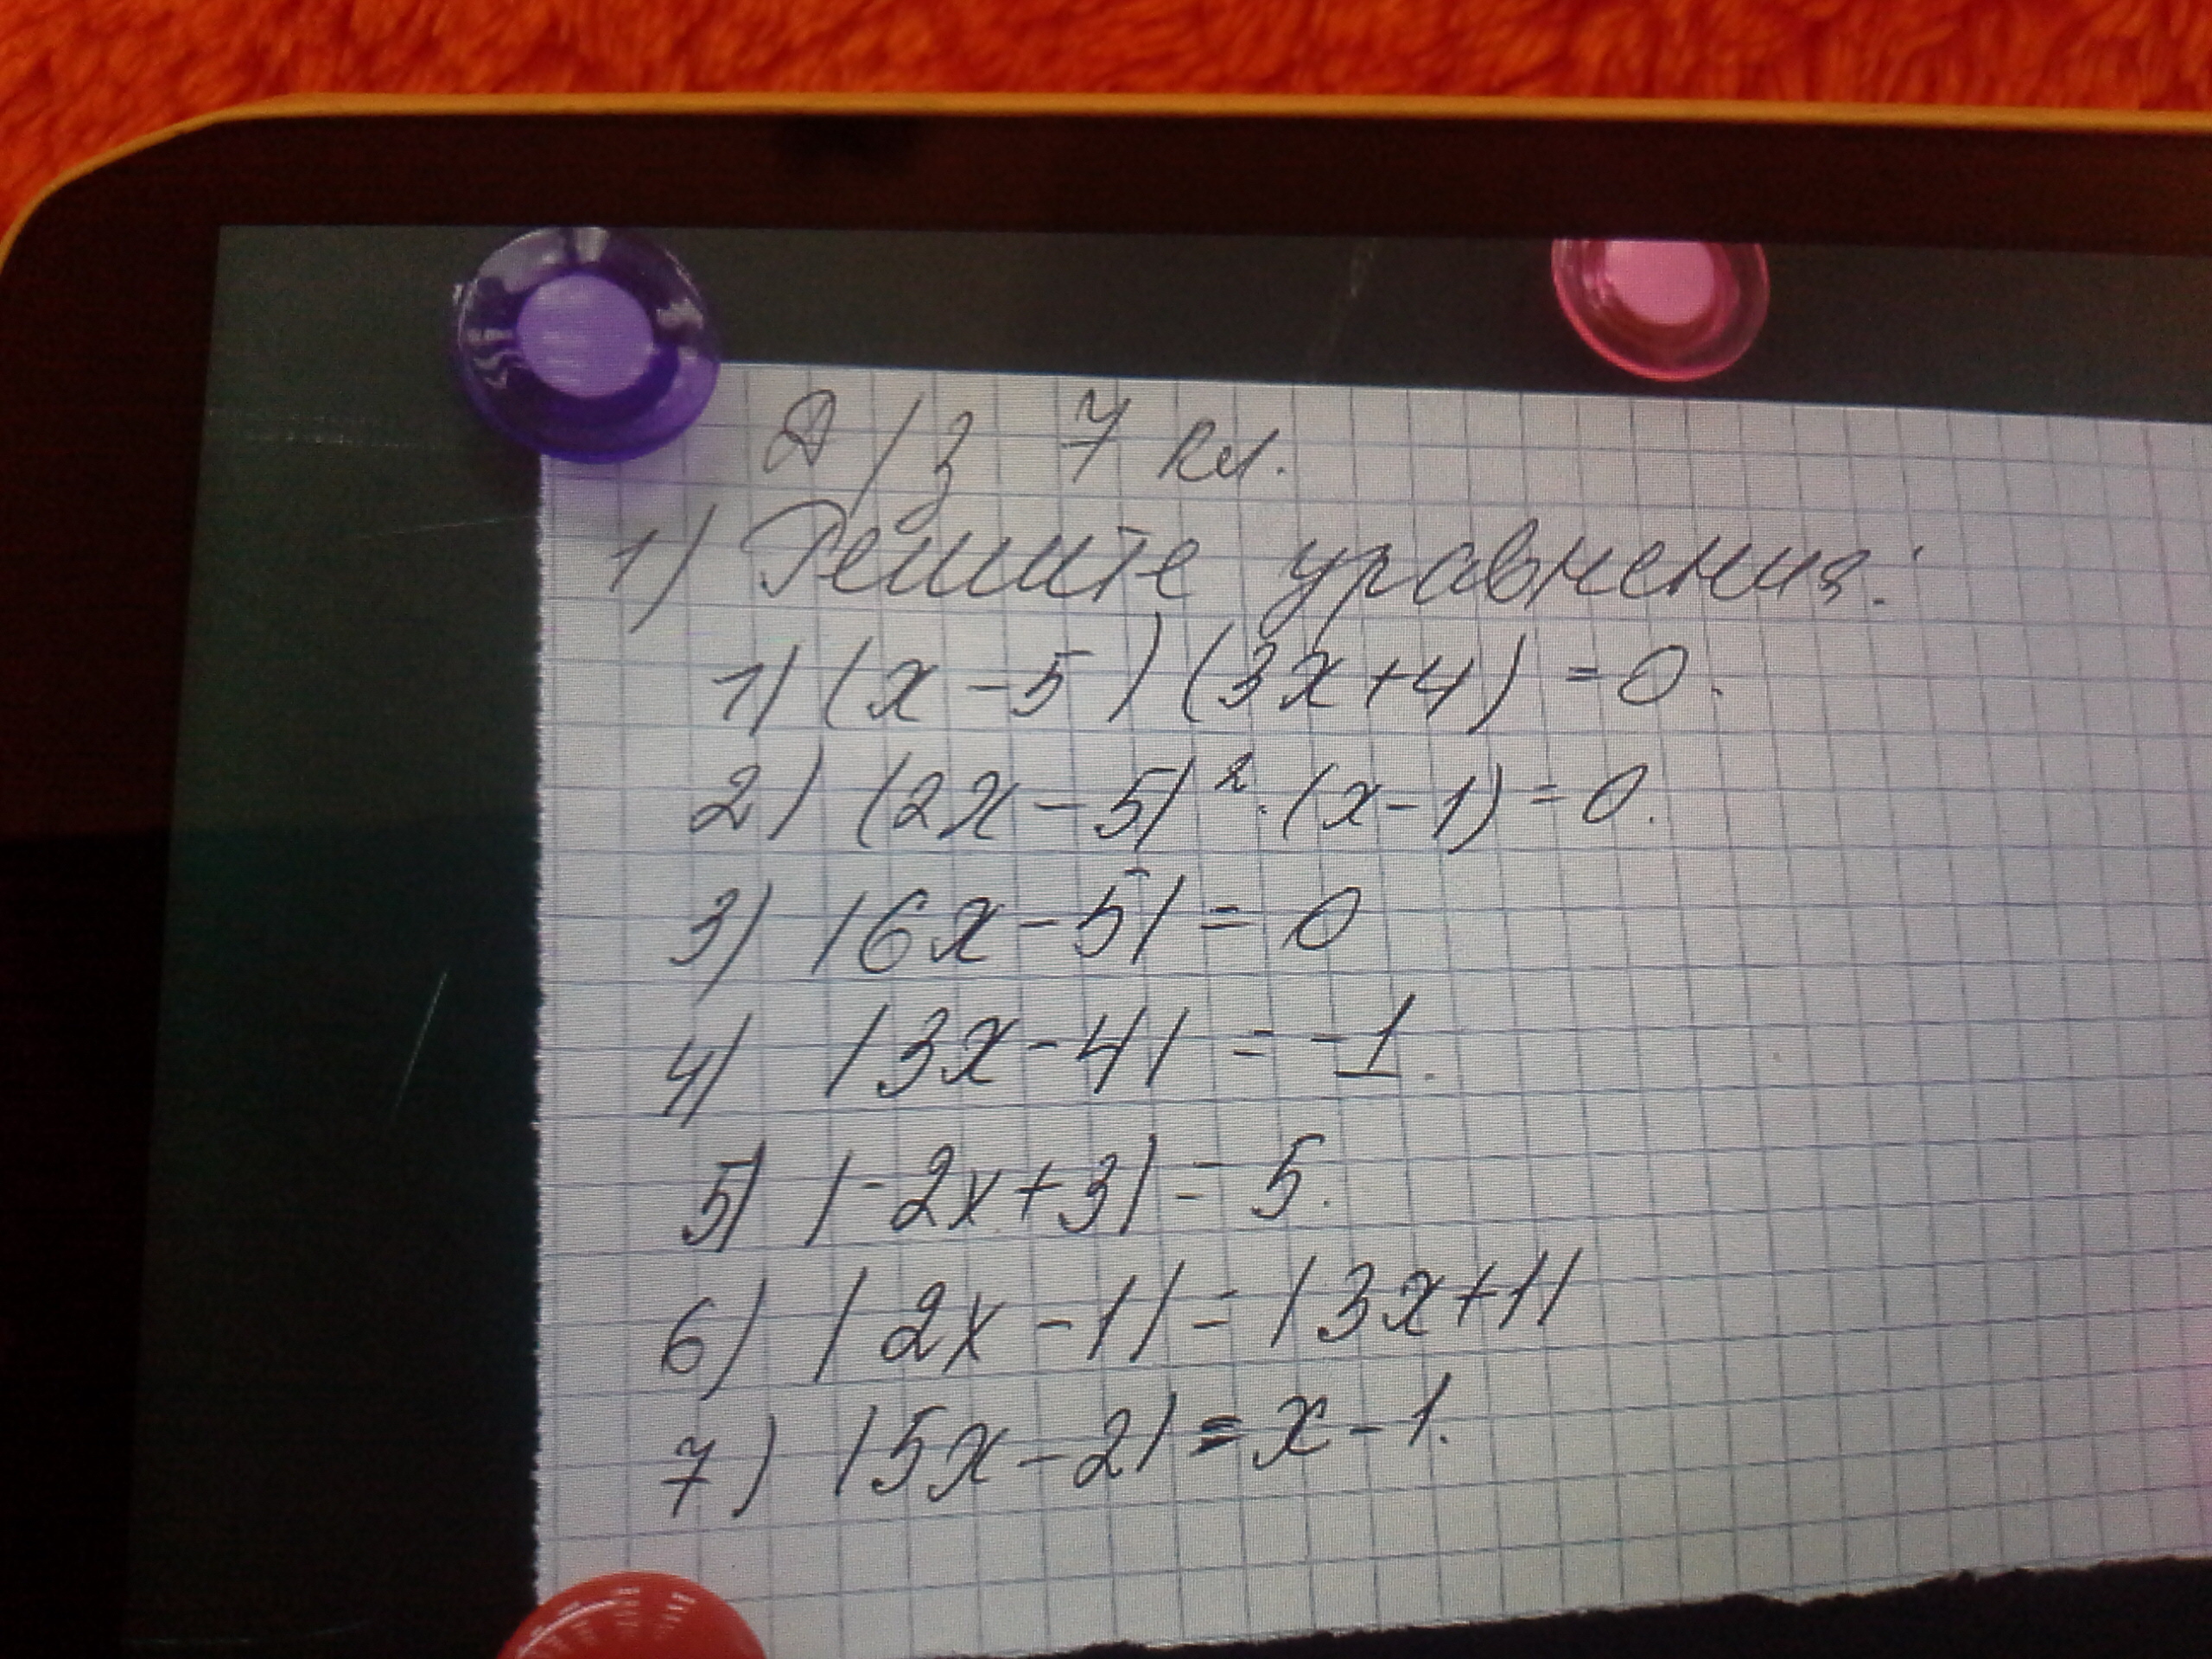 Д/з 7 кл.
1) Решите уравнения:
1) (x-5)(3x+4) = 0.
2) (2x-5)²·(x-1) = 0.
3) |6x-5| = 0
4) |3x-4| = -1.
5) |-2x+3| = 5.
6) |2x-1| = |3x+1|
7) |5x-2| = x-1.